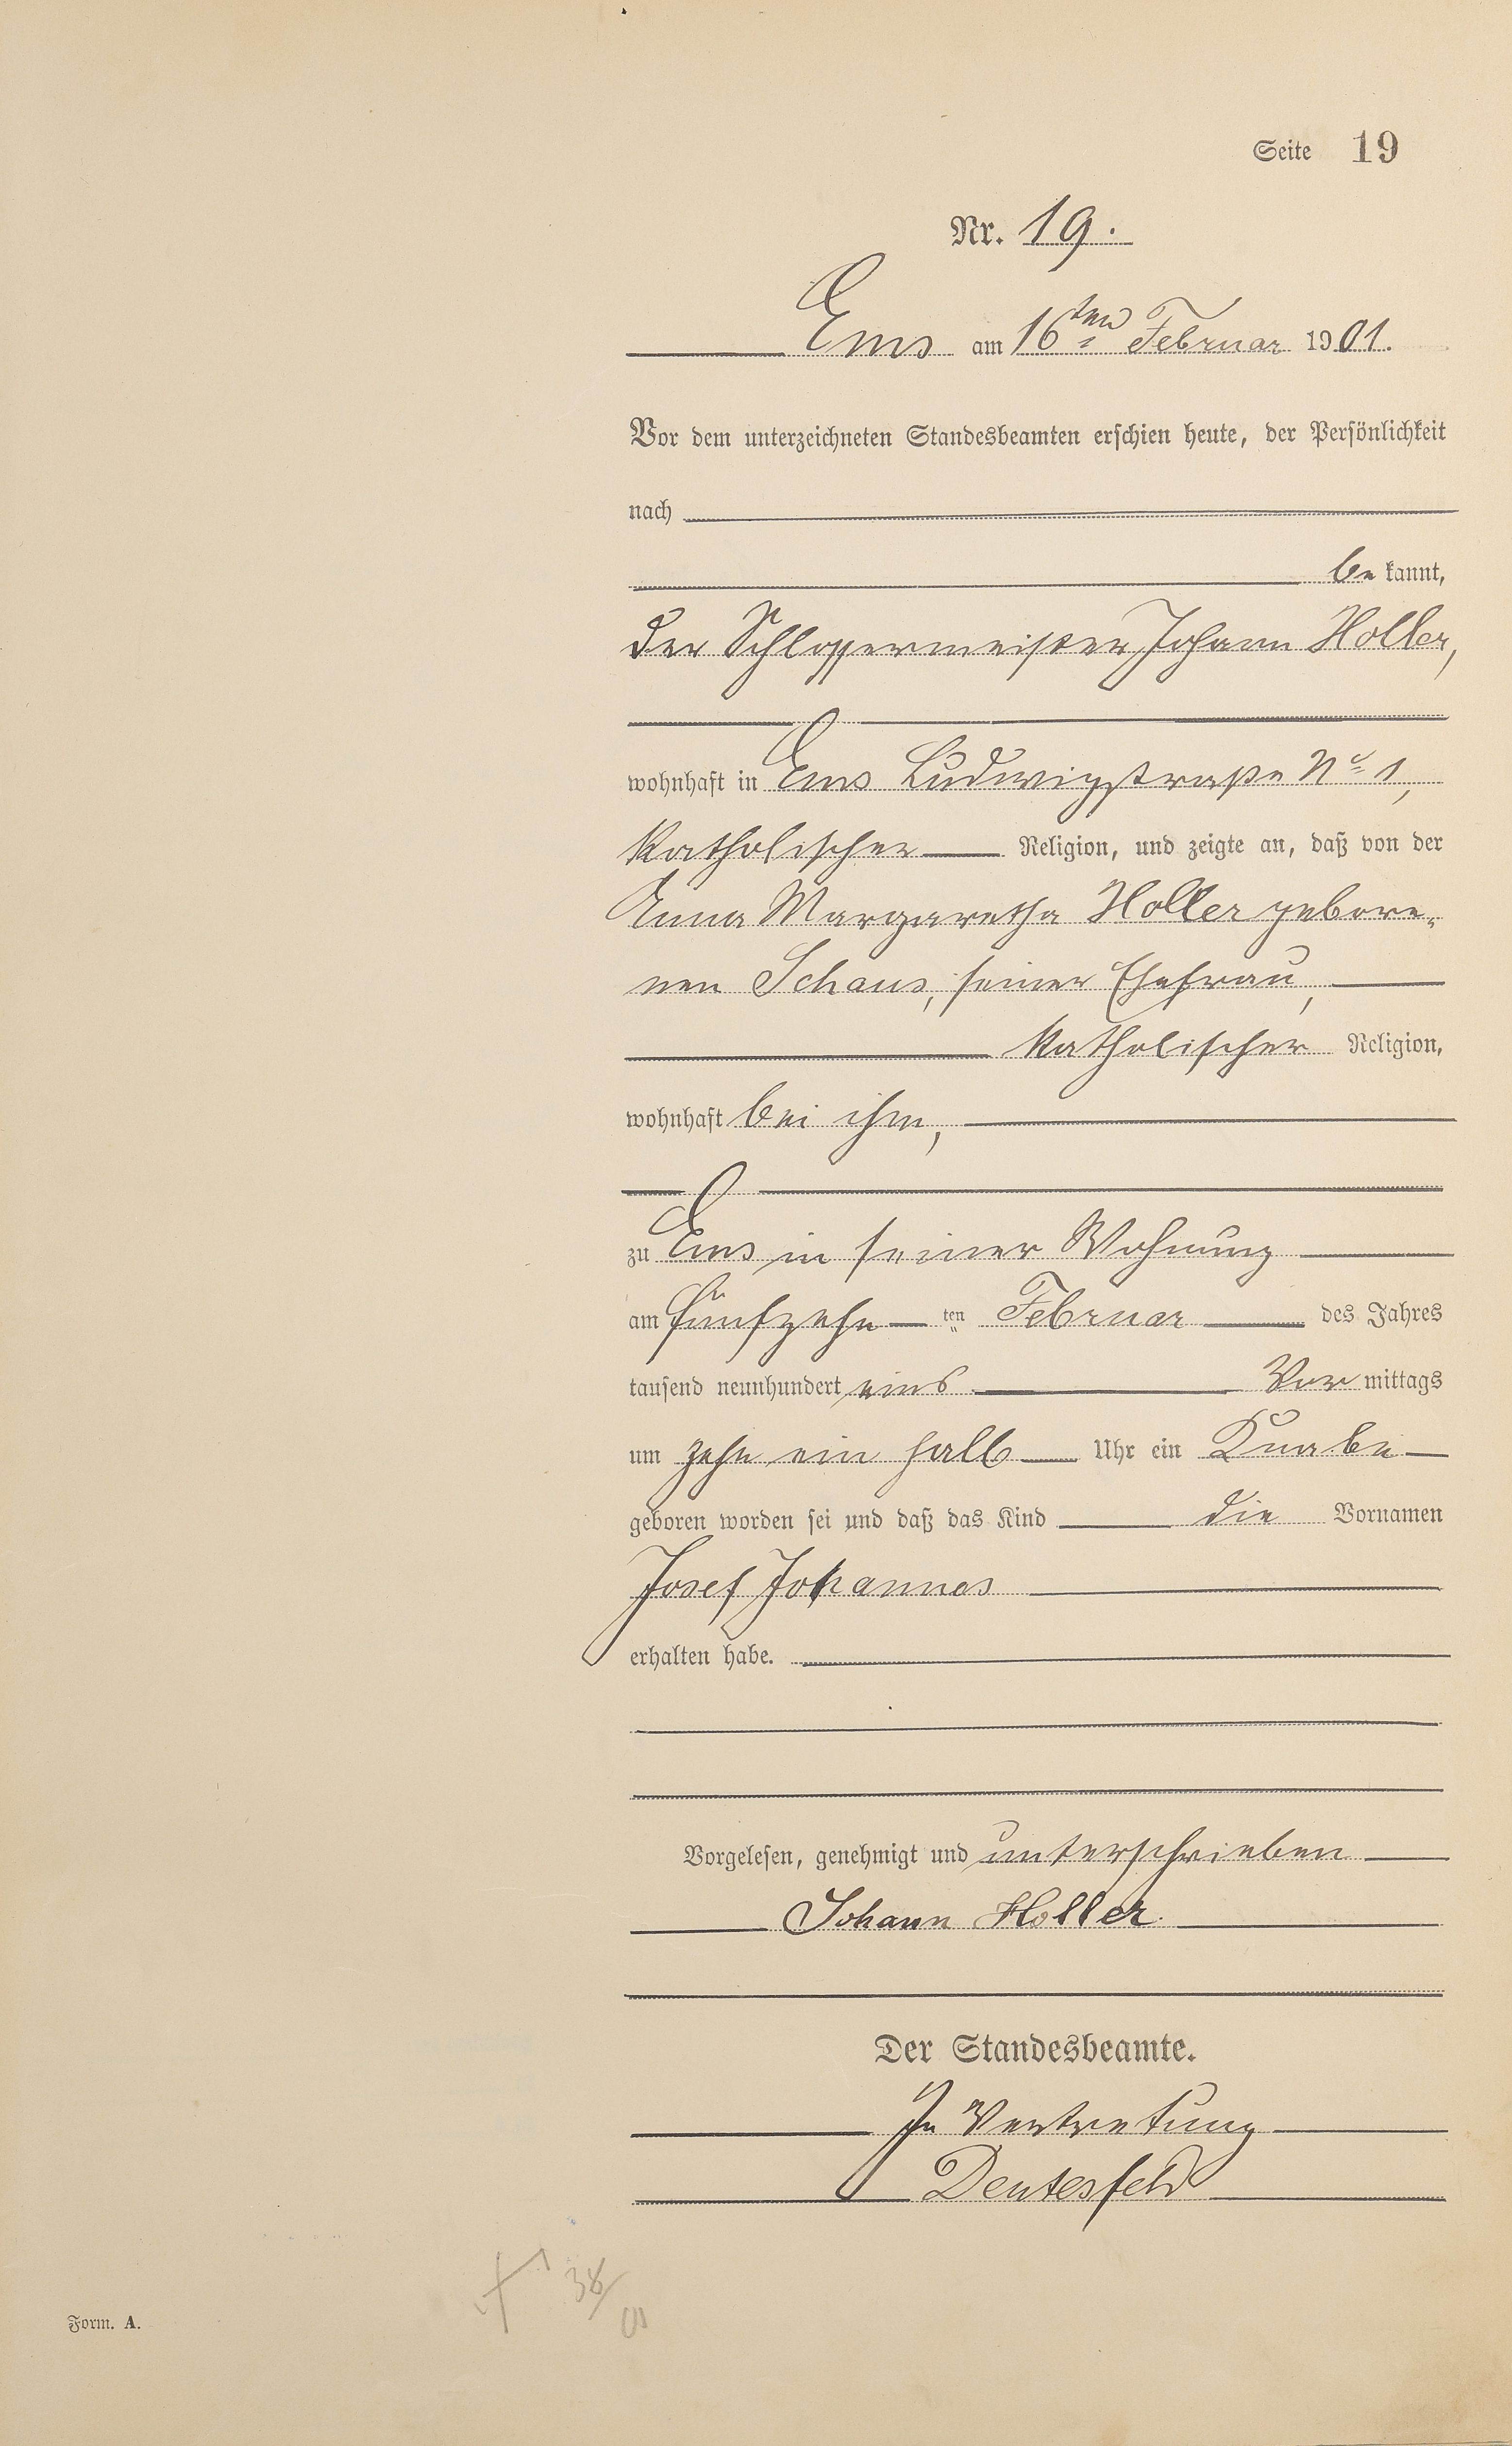 Seite 19
Nr. 19.
Ems am 16ten Februar 1901.
Vor dem unterzeichneten Standesbeamten erschien heute, der Persönlichkeit
nach
be kannt,
der Schlossermeister Johann Holler,
wohnhaft in Ems Ludwigstraße No 1,
katholischer Religion, und zeigte an, daß von der
Anna Margaretha Holler gebore-
nen Schaus, seiner Ehefrau,
katholischer Religion,
wohnhaft bei ihm,
zu Ems in seiner Wohnung
am fünfzehn ten Februar des Jahres
tausend neunhundert eins Vor mittags
um zehn ein halb Uhr ein Knabe
geboren worden sei und daß das Kind die Vornamen
Josef Johannes
erhalten habe.
Vorgelesen, genehmigt und unterschrieben
Johann Holler.
Der Standesbeamte.
In Vertretung
Deutesfeld
38/01
Form. A.